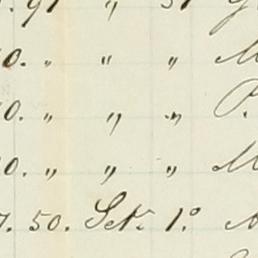 . 91 " 31
0. " " " M
0. " " " P.
0. " " " M
7. 50. Set. 1.º